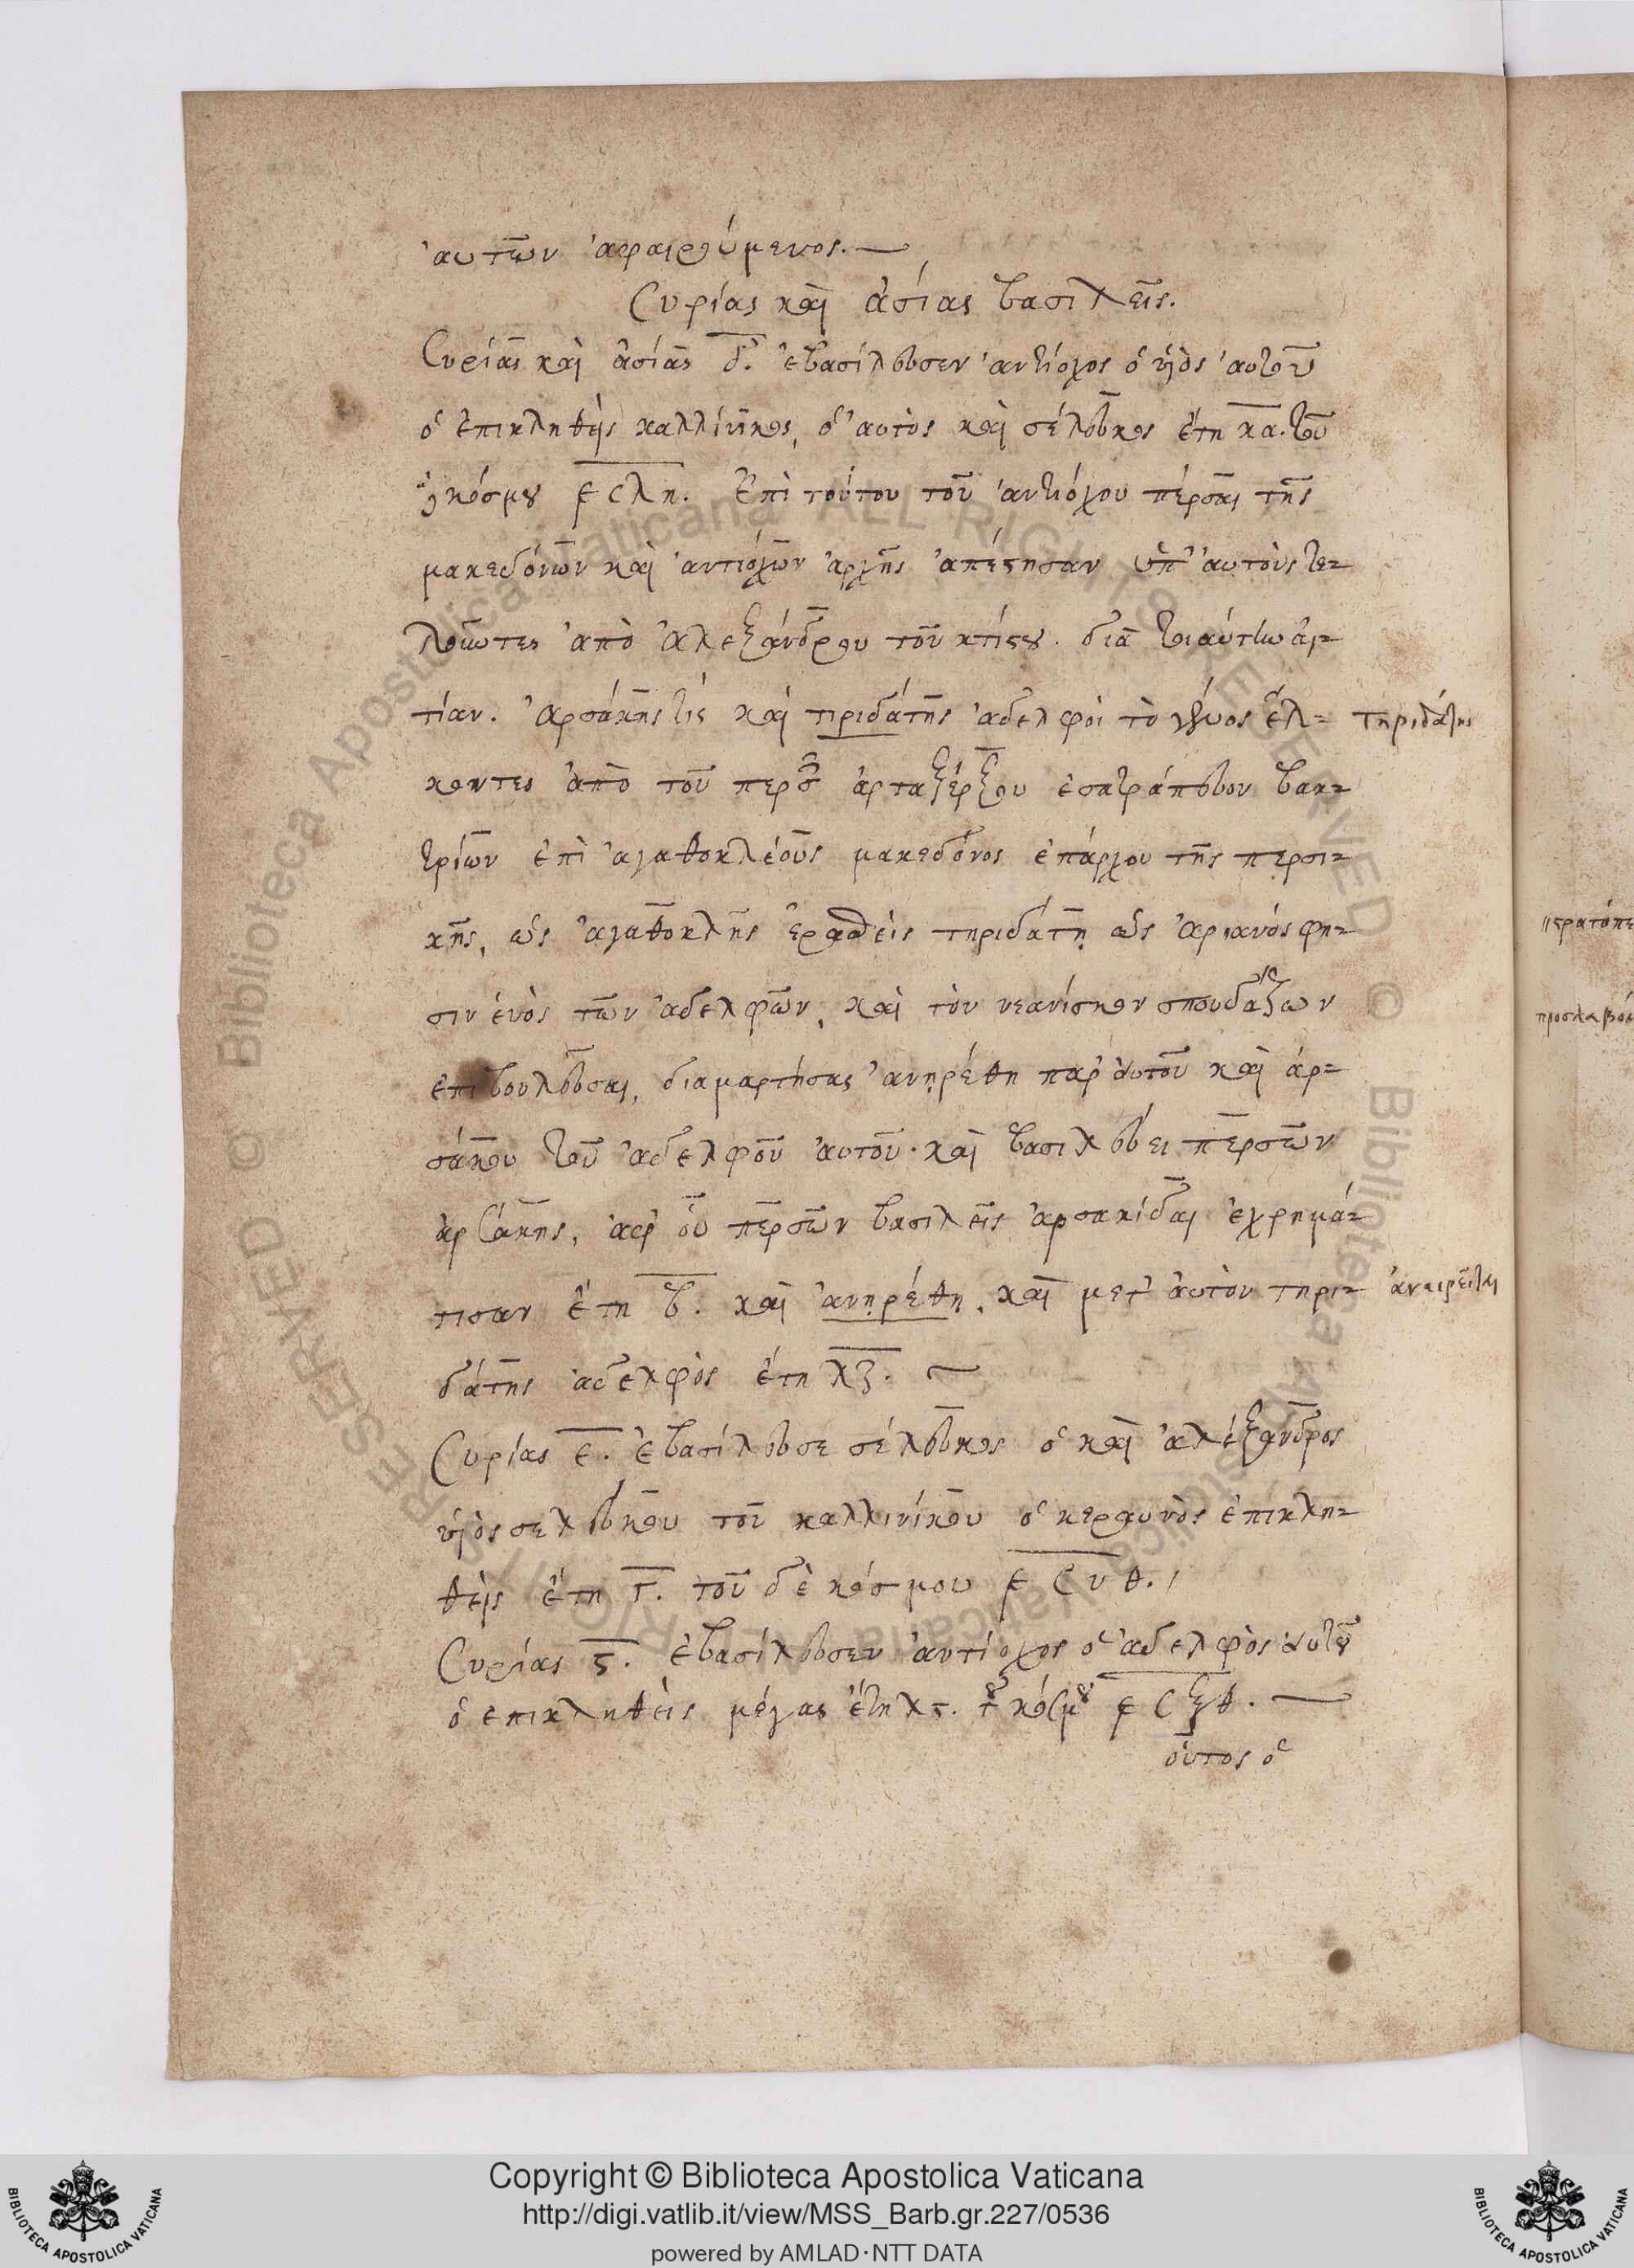 αυτῶν ἀφαιρούμενος.
Συρίας καὶ ἀσίας βασιλεῖς.
Συρίας καὶ ἀσίας δ. ἐβασίλευσεν ἀντίοχος ὁ υἱὸς αὐτοῦ
ὁ ἐπικληθεὶς καλλίνικος, ὁ αὐτὸς καὶ σέλευκος ἔτη κα. τοῦ
κόσμου ͵εσλη. Ἐπὶ τούτου τοῦ ἀντιόχου πέρσαι τῆς
μακεδόνων καὶ ἀντιόχων ἀρχῆς ἀπέστησαν ὑπ' αὐτοὺς τε-
λοῦντες ἀπὸ ἀλεξάνδρου τοῦ κτίστου. διὰ τοιαύτην αἰ-
τίαν. Ἀρσάκης τίς καὶ τιριδάτης ἀδελφοὶ τὸ γένος ἕλ- τηριδάτης
κοντες ἀπὸ τοῦ περσῶν ἀρταξέρξου ἐσατράπευον βακ-
τρίων ἐπὶ ἀγαθοκλέους μακεδόνος ἐπάρχου τῆς περσι-
κῆς, ὡς ἀγαθοκλῆς ἐρασθεὶς τηριδάτῃ ὡς ἀριανός φη-
σιν ἑνὸς τῶν ἀδελφῶν, καὶ τὸν νεανίσκον σπουδάζων
ἐπιβουλεῦσαι, διαμαρτήσας ἀνῃρέθη παρ' αὐτοῦ καὶ ἀρ-
σάκου τοῦ ἀδελφοῦ αὐτοῦ. καὶ βασιλεύει περσῶν
ἀρσάκης, ἀφ' οὗ περσῶν βασιλεῖς ἀρσακίδαι ἐχρημά-
τισαν ἔτη β. καὶ ἀνῃρέθη. καὶ μετ' αὐτὸν τηρι- ἀναιρεῖται
δάτης ἀδελφὸς ἔτη λζ.
Συρίας ε. ἐβασίλευσε σέλευκος ὁ καὶ ἀλέξανδρος
υἱὸς σελεύκου τοῦ καλλινίκου ὁ κεραυνὸς ἐπικλη-
θεὶς ἔτη γ. τοῦ δὲ κόσμου ͵εσνθ.
Συρίας ς. ἐβασίλευσεν ἀντίοχος ὁ ἀδελφὸς αὐτοῦ
ὁ ἐπικληθεὶς μέγας ἔτη λς. τοῦ κόσμου ͵εσξθ.
οὗτος ὁ
προσλαβόμ
Copyright © Biblioteca Apostolica Vaticana
http://digi.vatlib.it/view/MSS_Barb.gr.227/0536
powered by AMLAD·NTT DATA
BIBLIOTECA APOSTOLICA VATICANA
BIBLIOTECA APOSTOLICA VATICANA
© Biblioteca Apostolica Vaticana ALL RIGHTS RESERVED © Biblioteca Apostolica Vaticana ALL RIGHTS RESERVED